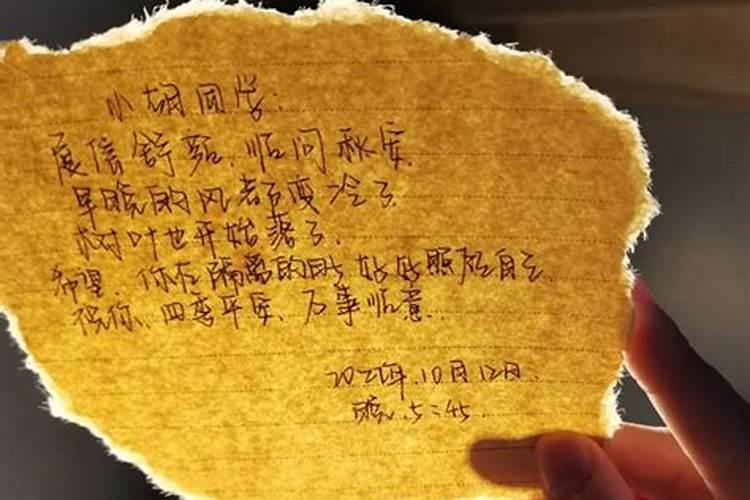 小胡同学:
展信舒颜,顺问秋安.
早晚的风都变冷了
树叶也开始落了.
希望,你在隔离的日子,好好照顾自己.
祝你、四季平安、万事顺意..
2022年.10月12日.
晚.5:45